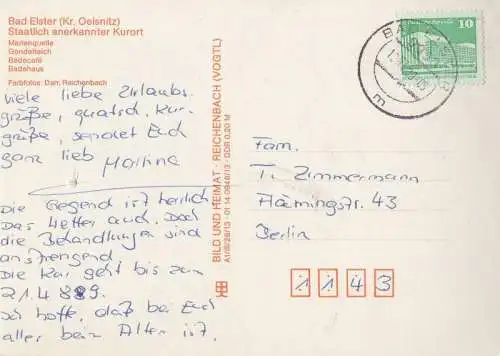 Bad Elster (Kr. Oelsnitz)
Staatlich anerkannter Kurort
Marienquelle
Gondelteich
Badecafé
Badehaus
Farbfotos: Darr, Reichenbach
viele liebe Urlaubs-
grüße, quatsch, Kur-
grüße, sendet Euch
ganz lieb Martina
Die Gegend ist herrlich
Das Wetter auch. Doch
die Behandlungen sind
anstrengend.
Die Kur geht bis zum
21.4.89.
Ich hoffe, daß bei Euch
alles beim Alten ist.
BILD UND HEIMAT · REICHENBACH (VOGTL)
DDR 0,20 M
10
Fam.
T. Zimmermann
Flämingstr. 43
Berlin
1 1 4 3